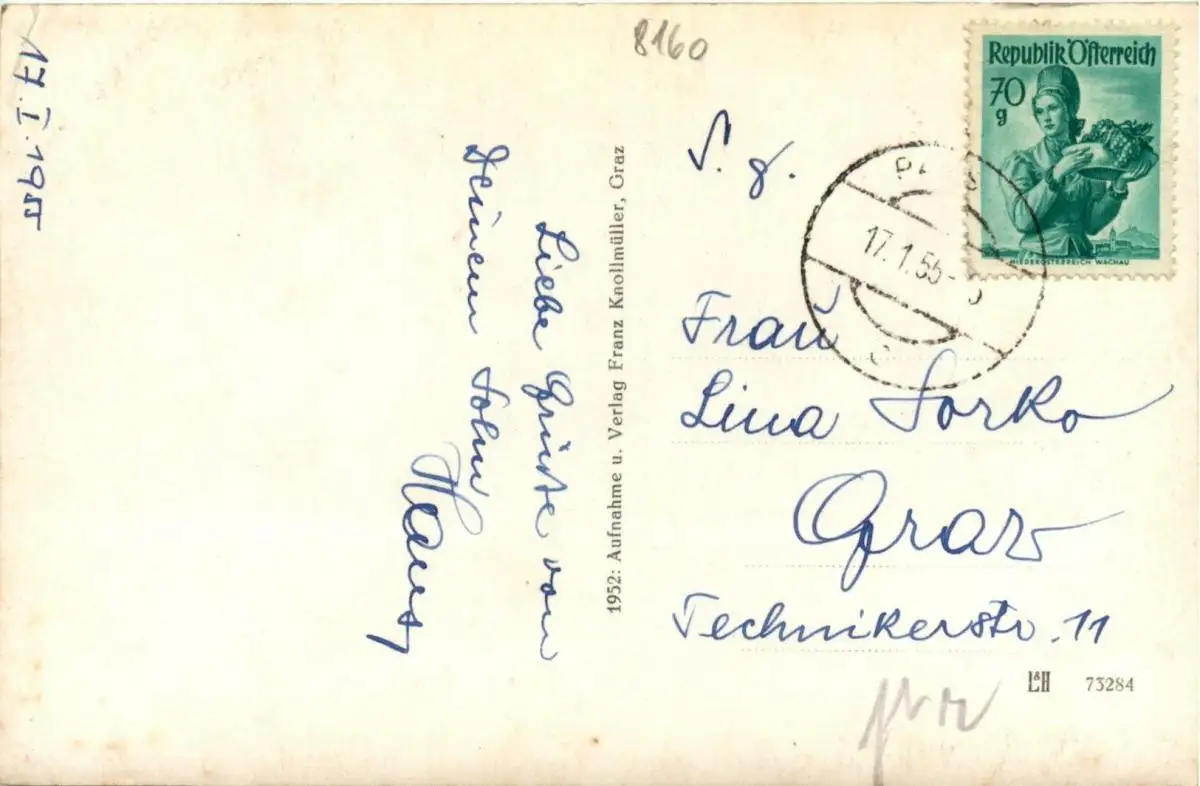 17.I.1955
Liebe Grüsse von
Deinem Sohn
Hans
1952: Aufnahme u. Verlag Franz Knollmüller, Graz
8160
Republik Österreich
70
g
NIEDERÖSTERREICH WACHAU
17.1.55
S. g.
Frau
Lina Sorko
Graz
Technikerstr. 11
L&H 73284